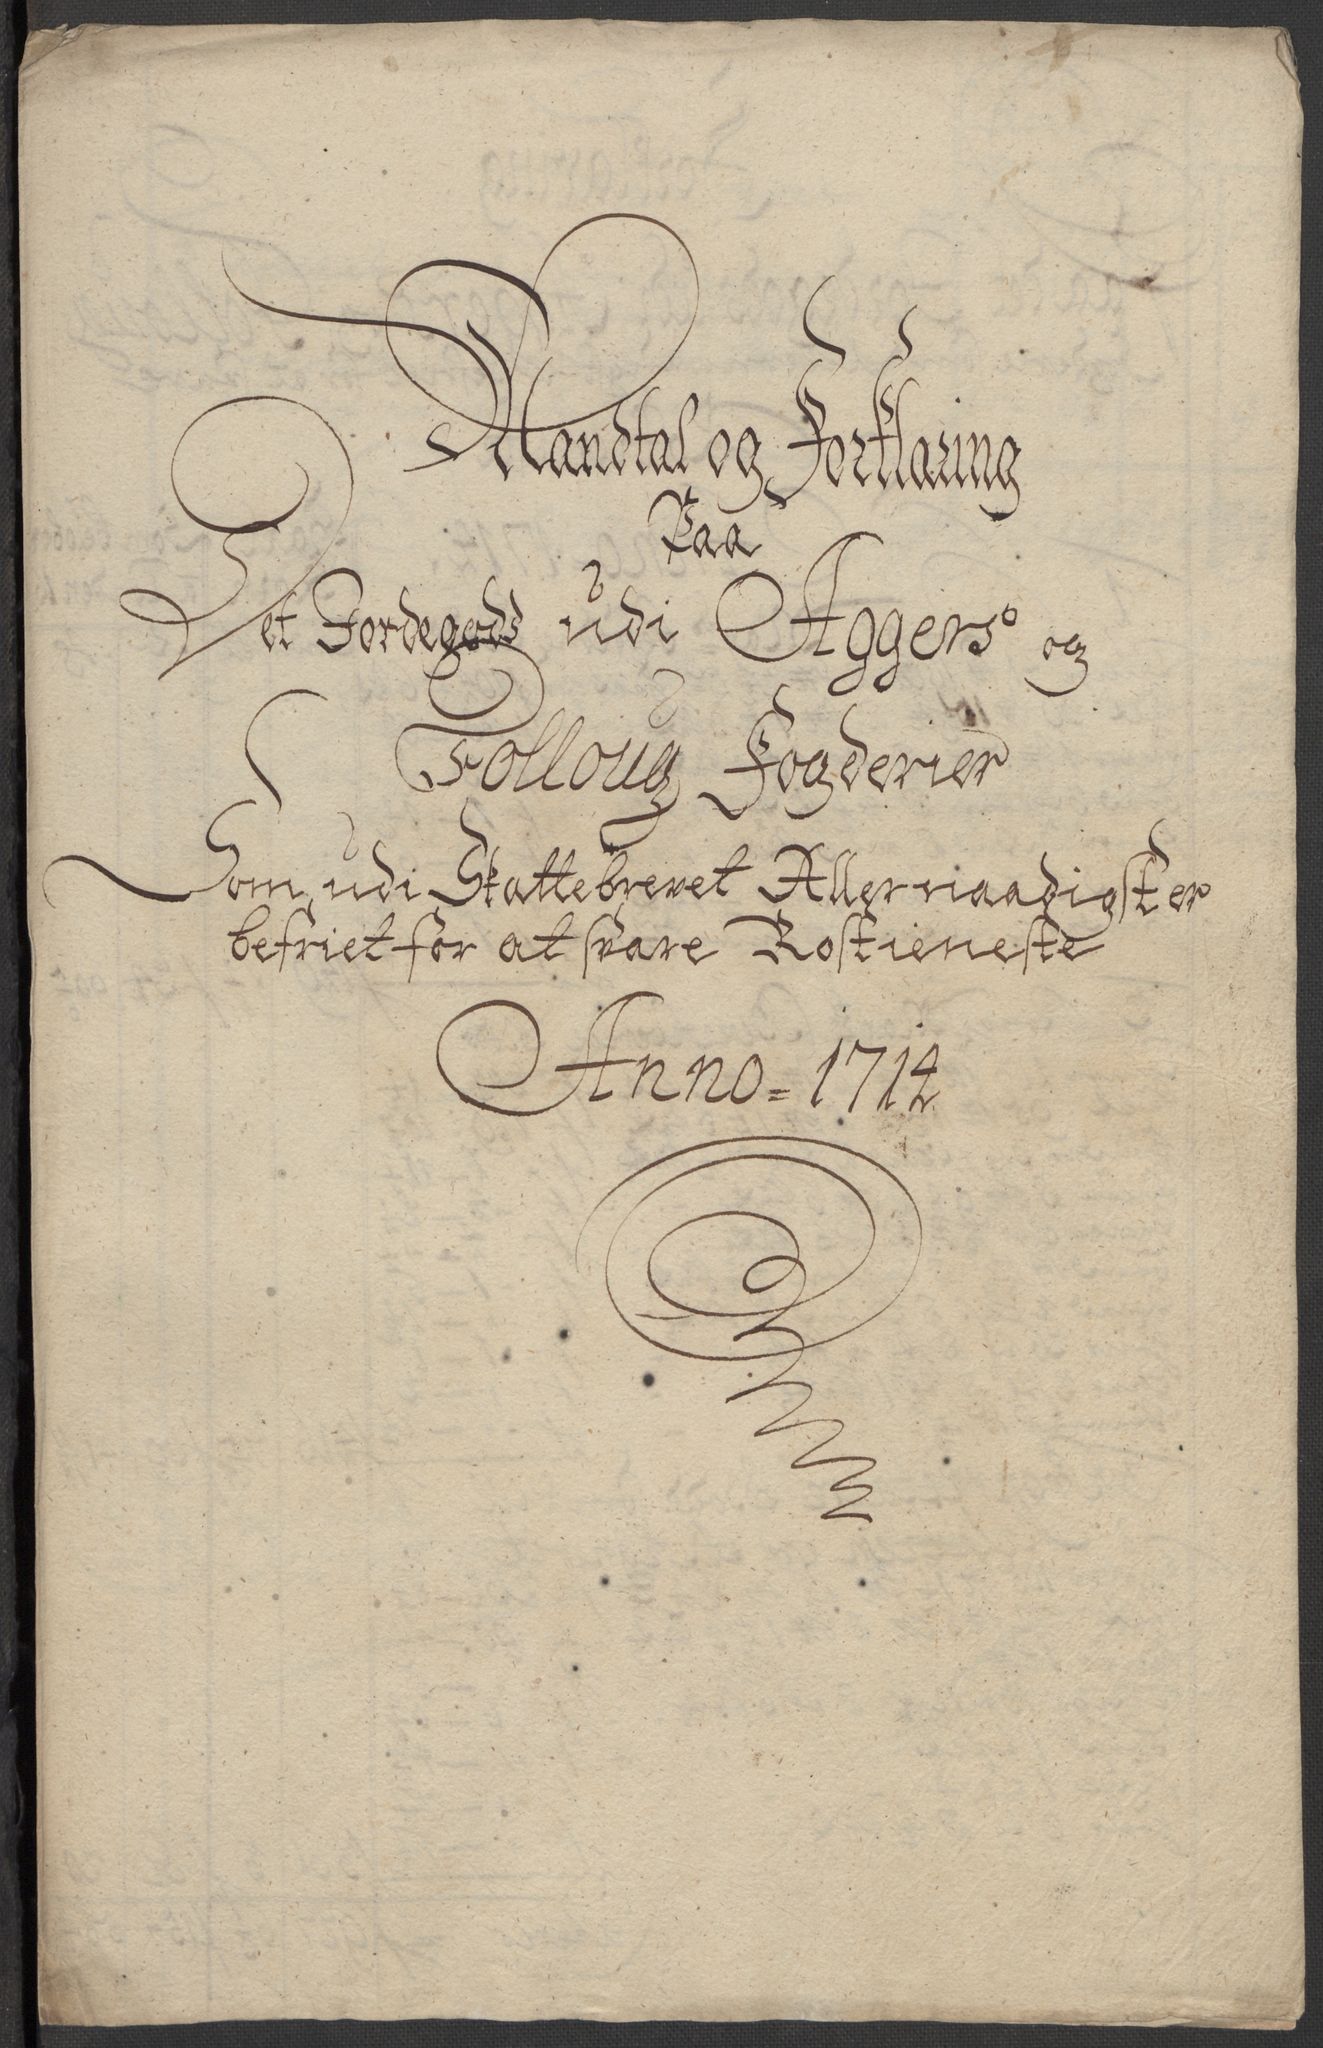 Mandtal og Forklaring
Paa
Det Jordegods udi Aggers° og
Folloug Fogderier
Som udi Skattebrevet Allernaadigst er
befriet for at svare Rostieneste
Anno = 1714